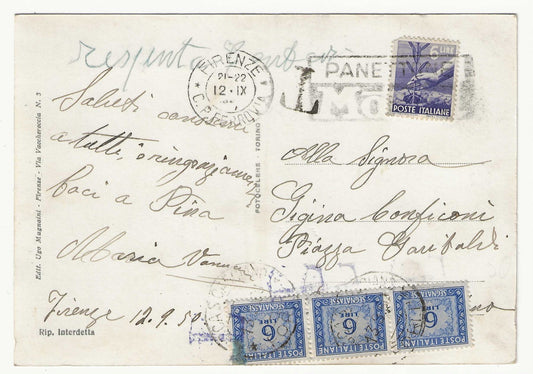 FIRENZE
21-22
12·IX
C.P. FERROVIA
T
PANE
MO
6 LIRE
POSTE ITALIANE
Saluti
a tutti, e ringraziamenti
Baci a Pina
Maria
Firenze 12.9.50
Alla Signora
Gigina Conficoni
Piazza Garibaldi
Edit. Ugo Magnaini - Firenze - Via Vacchereccia N. 3
FOTOCELERE TORINO
Rip. Interdetta
SEGNATASSE
LIRE
6
POSTE ITALIANE
SEGNATASSE
LIRE
6
POSTE ITALIANE
SEGNATASSE
LIRE
6
POSTE ITALIANE